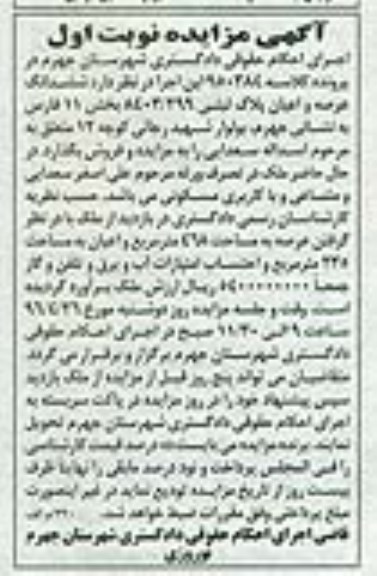 آگهی مزایده نوبت اول
اجرای احکام حقوقی دادگستری شهرستان جهرم در
پرونده کلاسه ۹۵۰۳۸۴ این اجرا در نظر دارد ششدانگ
عرصه و اعیان پلاک ثبتی ۵۴۰۳/۲۹۶ بخش ۱۱ فارس
به نشانی جهرم، بولوار شهید رجائی کوچه ۱۲ متعلق به
مرحوم اسداله سعدایی را به مزایده و فروش بگذارد. در
حال حاضر ملک در تصرف ورثه مرحوم علی اصغر سعدایی
و مشاعی و با کاربری مسکونی می باشد. حسب نظریه
کارشناسان رسمی دادگستری در بازدید از ملک با در نظر
گرفتن عرصه به مساحت ۴۶۵ مترمربع و اعیان به مساحت
۲۳۵ مترمربع و احتساب امتیازات آب و برق و تلفن و گاز
جمعاً ۵۴۰۰۰۰۰۰۰۰ ریال ارزش ملک برآورد گردیده
است. وقت و جلسه مزایده روز دوشنبه مورخ ۹۶/۴/۲۶
ساعت ۹ الی ۱۱:۳۰ صبح در اجرای احکام حقوقی
دادگستری شهرستان جهرم برگزار و برقرار می گردد.
متقاضیان می تواند پنج روز قبل از مزایده از ملک بازدید
سپس پیشنهاد خود را در روز مزایده در پاکت سربسته به
اجرای احکام حقوقی دادگستری شهرستان جهرم تحویل
نمایند. برنده مزایده می بایست ده درصد قیمت کارشناسی
را فی المجلس پرداخت و نود درصد مابقی را نهایتا ظرف
بیست روز از تاریخ مزایده تودیع نماید در غیر اینصورت
مبلغ پرداختی وفق مقررات ضبط خواهد شد.
قاضی اجرای احکام حقوقی دادگستری شهرستان جهرم
نوروزی